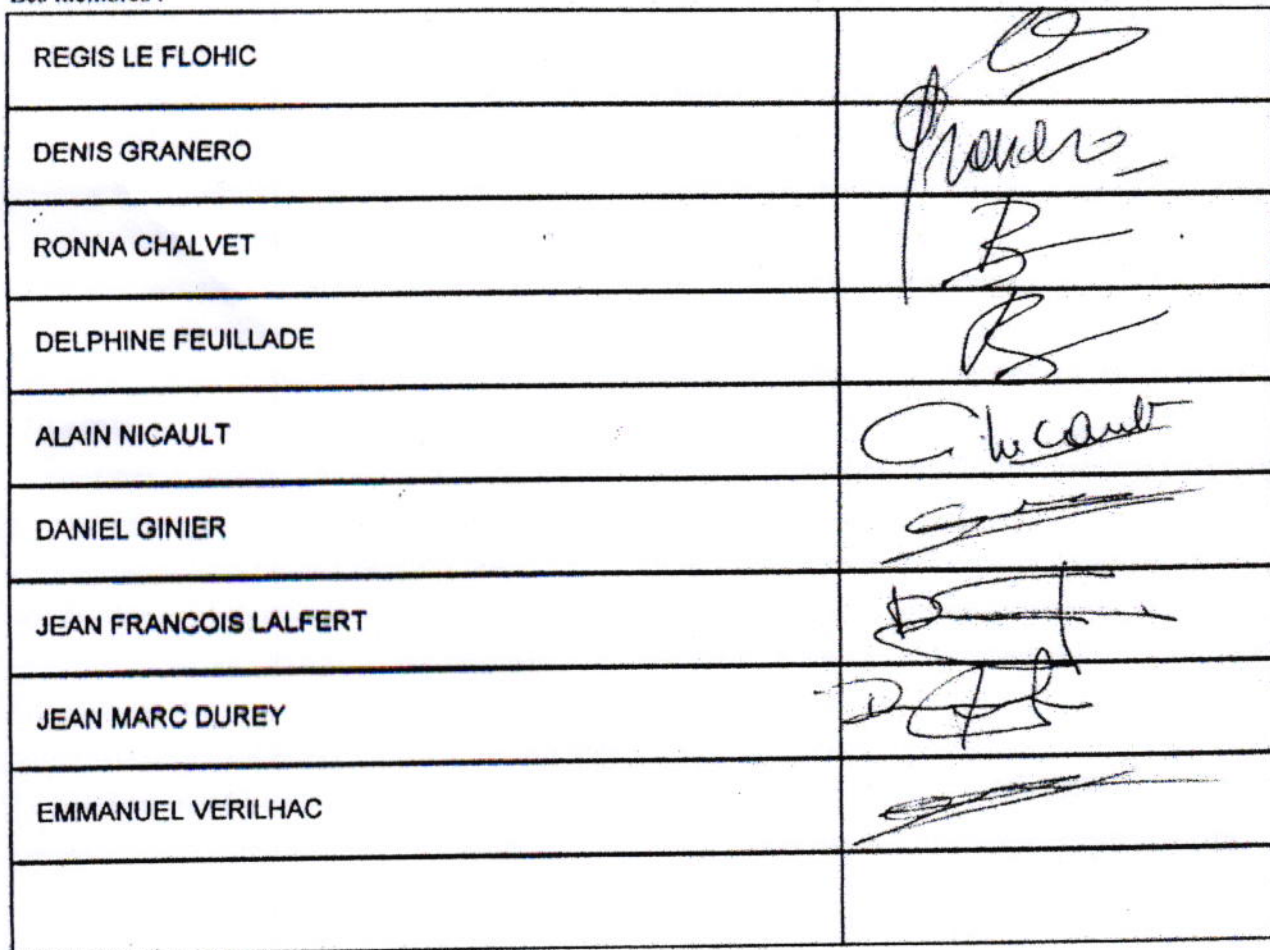 REGIS LE FLOHIC
DENIS GRANERO Granero
RONNA CHALVET
DELPHINE FEUILLADE
ALAIN NICAULT Nicault
DANIEL GINIER
JEAN FRANCOIS LALFERT
JEAN MARC DUREY
EMMANUEL VERILHAC